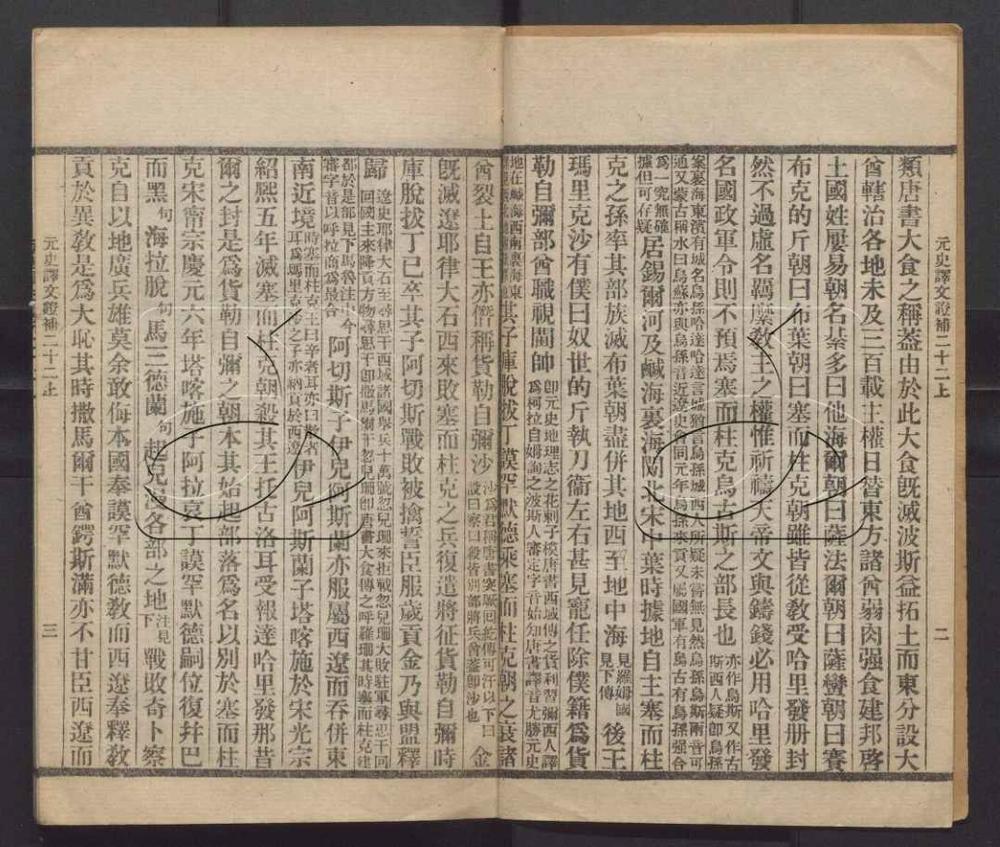 元史譯文證補二十二上
二
類唐書大食之稱蓋由於此大食旣滅波斯益拓土而東分設大
酋轄治各地未及三百載主權日替東方諸酋弱肉强食建邦啓
土國姓屢易朝名綦多曰他海爾朝曰薩法爾朝曰薩蠻朝曰賽
布克的斤朝曰布葉朝曰塞而柱克朝雖皆從教受哈里發册封
然不過虛名羈縻教主之權惟祈禱天帝文與鑄錢必用哈里發
名國政軍令則不預焉塞而柱克烏古斯之部長也 亦作烏斯又作古斯西人疑卽烏孫
案裏海東濱有城名烏孫哈達哈達言城猶言烏孫城西人所疑未嘗無見然烏孫烏斯兩音可
通又蒙古稱水曰烏蘇亦與烏孫音近遼史會同元年烏孫來貢又屬國軍有烏古有烏孫强合
爲一究無確
據但可存疑 居錫爾河及鹹海裏海間北宋中葉時據地自主塞而柱
克之孫率其部族滅布葉朝盡併其地西至地中海 見羅姆國見下傳 後王
瑪里克沙有僕曰奴世的斤執刀衞左右甚見寵任除僕籍爲貨
勒自彌部酋職視閫帥 卽元史地理志之花剌子模唐書西域傳之貨利習彌西人譯爲柯拉自姆詢之波斯人審定字音始知唐書譯音尤勝元史
地在鹹海西南裏海東
其子庫脫拔丁謨罕默德乘塞而柱克朝之衰諸
酋裂土自王亦僭稱貨勒自彌沙 沙爲君稱隋書突厥回紇傳可汗以下曰設曰察曰殺皆別部將兵酋蓋卽沙也 金
旣滅遼耶律大石西來敗塞而柱克之兵復遣將征貨勒自彌時
庫脫拔丁已卒其子阿切斯戰敗被擒誓臣服歲貢金乃與盟釋
歸 遼史耶律大石至尋思干西域諸國舉兵十萬號忽兒珊來拒戰忽兒珊大敗駐軍尋思干回回國王來降貢方物尋思干卽撒馬爾干忽兒珊卽唐書大食傳之呼羅珊其時塞而柱克建
都於是部見下馬魯注中今
審字音以呼拉商爲最合 阿切斯子伊兒阿斯蘭亦服屬西遼而吞併東
南近境 伊兒阿斯蘭子塔喀施於宋光宗
紹熙五年滅塞而柱克朝殺其王托古洛耳受報達哈里發那昔
爾之封是爲貨勒自彌之朝本其始起部落爲名以別於塞而柱
克宋甯宗慶元六年塔喀施子阿拉哀丁謨罕默德嗣位復幷巴
而黑 句 海拉脫 句 馬三德蘭 句 起兒漫各部之地 注見下 戰敗奇卜察
克自以地廣兵雄莫余敢侮本國奉謨罕默德教而西遼奉釋教
貢於異教是爲大恥其時撒馬爾干酋鍔斯滿亦不甘臣西遼而
元史譯文證補二十二上
三